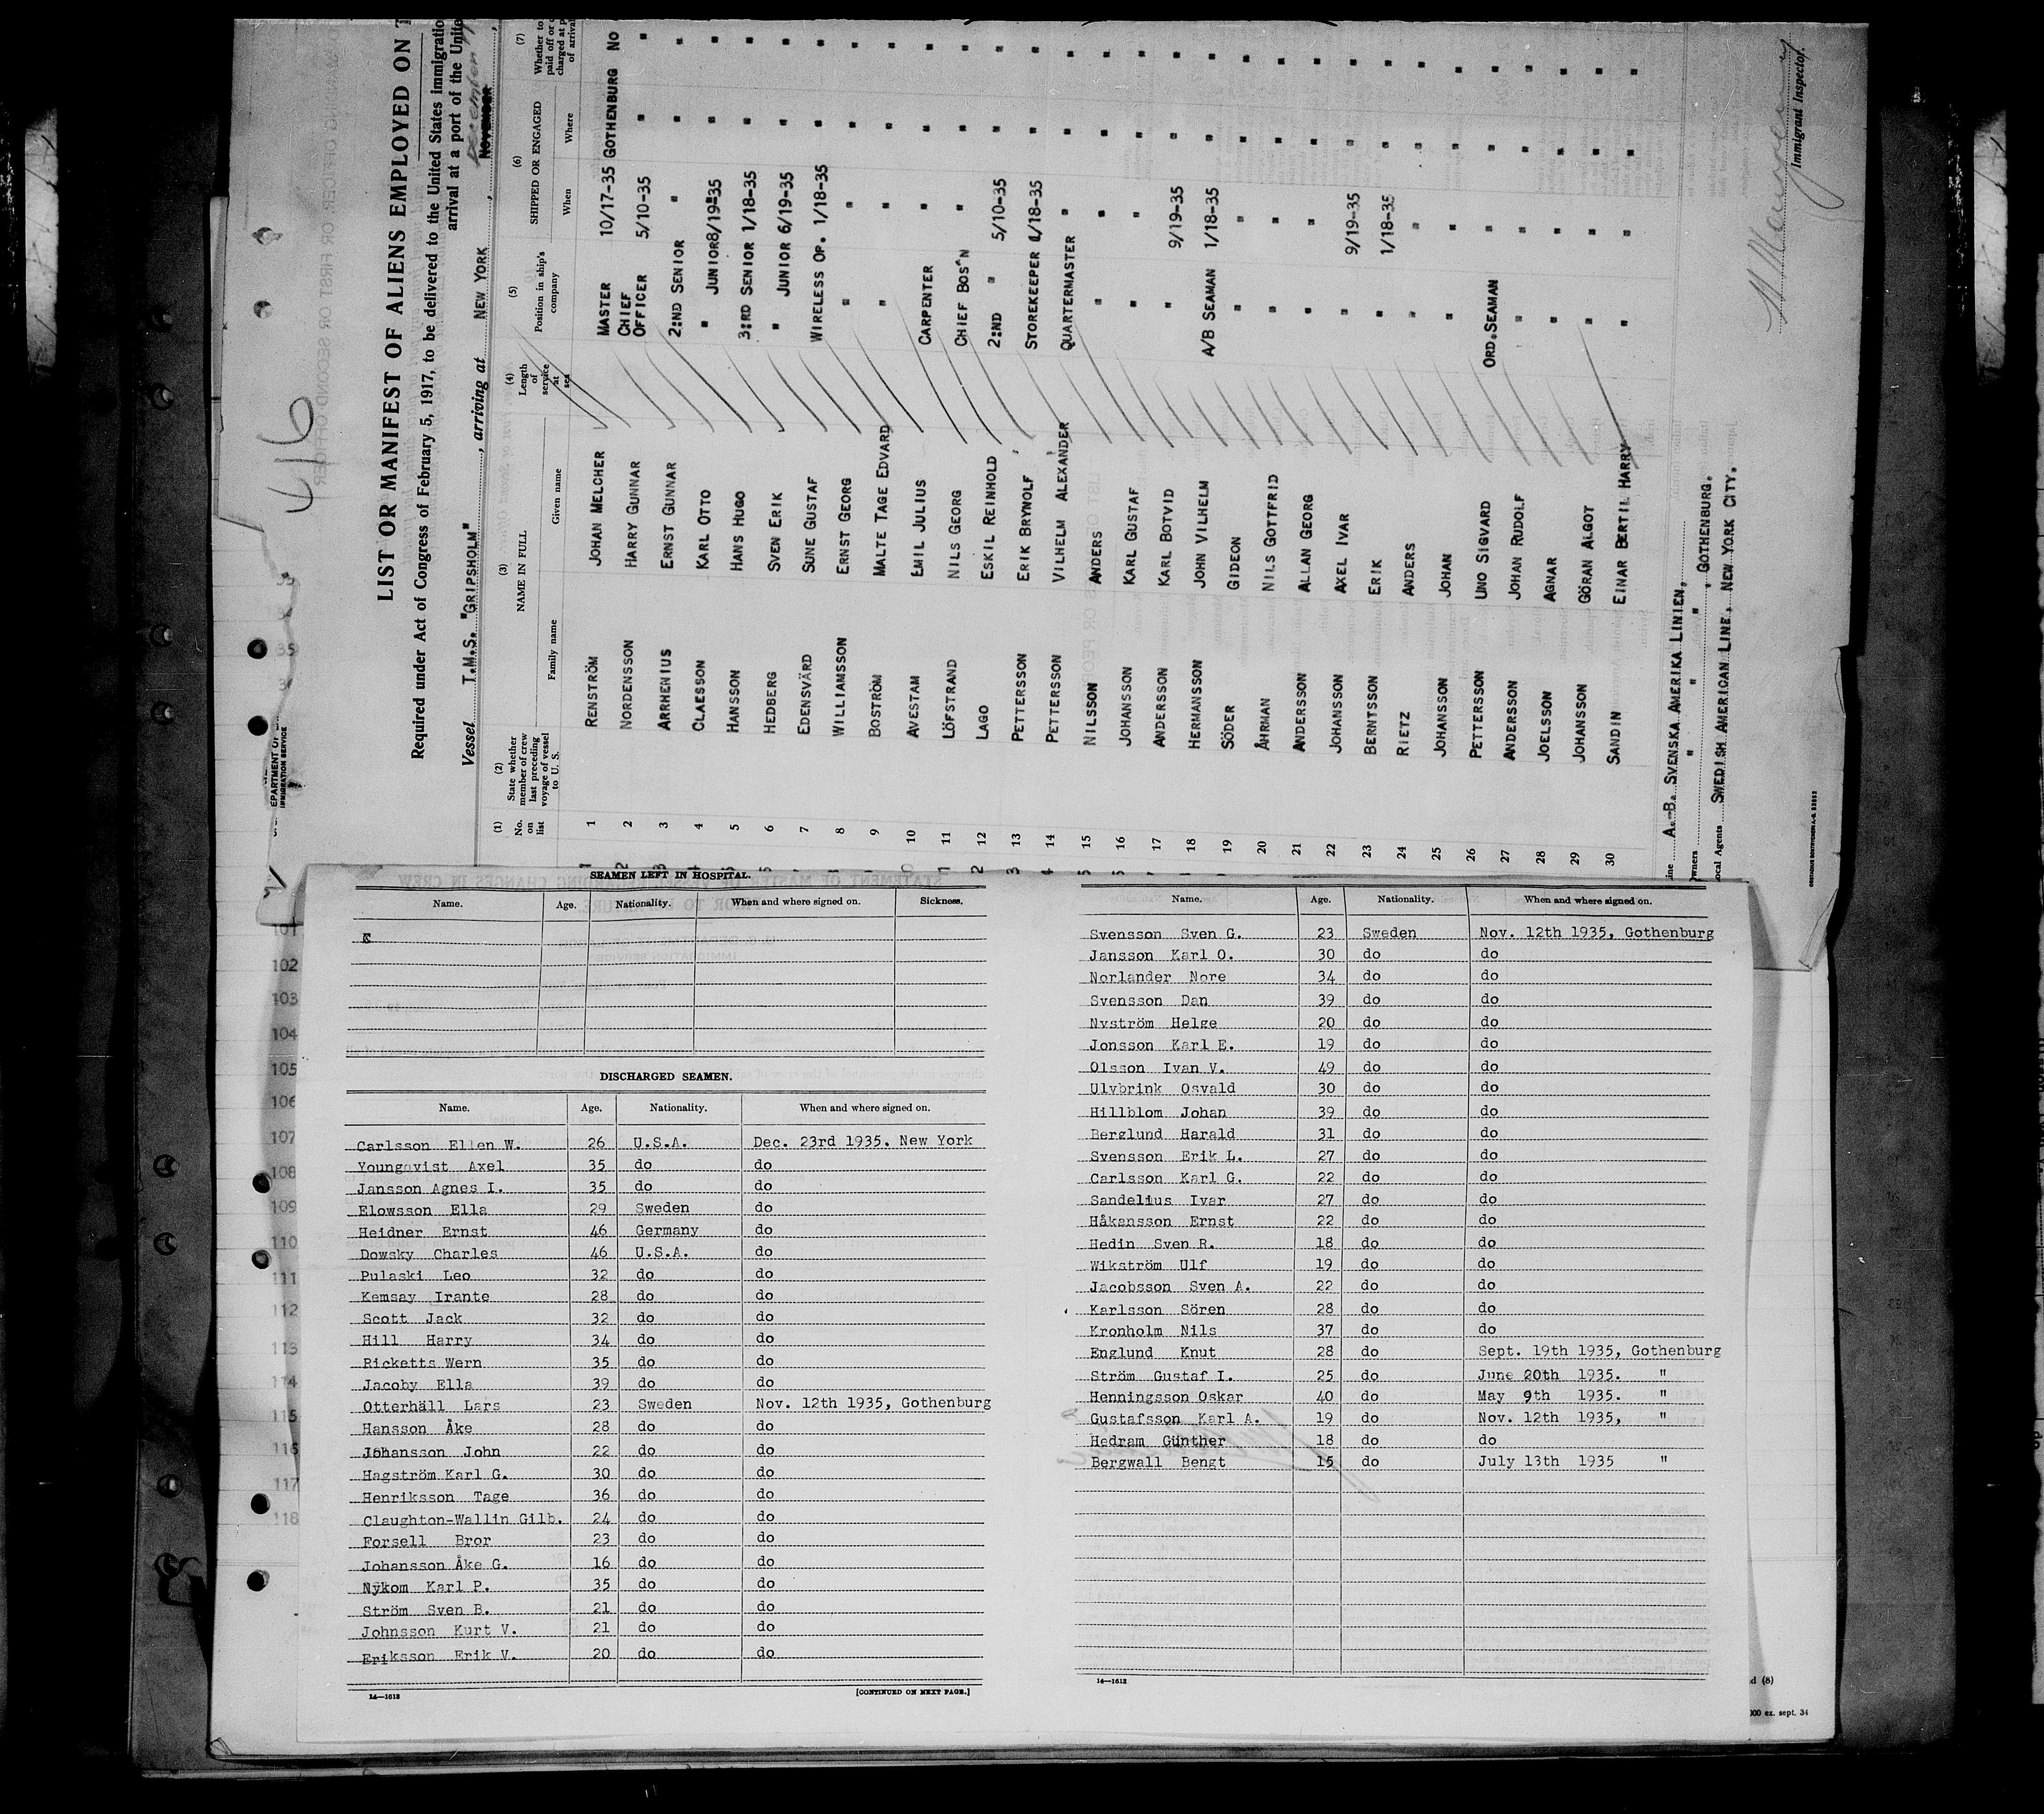 416
LIST OR MANIFEST OF ALIENS EMPLOYED ON
Required under Act of Congress of February 5, 1917, to be delivered to the United States
arrival at a port of the
Vessel T.M.S. "GRIPSHOLM", arriving at NEW YORK,
(1) No. on list (2) State whether member of crew last preceding voyage of vessel to U. S. (3) NAME IN FULL Family name Given name (4) Length of service at sea (5) Position in ship's company (6) SHIPPED OR ENGAGED When Where (7) Whether to
1 RENSTRÖM JOHAN MELCHER MASTER 10/17-35 GOTHENBURG NO
2 NORDENSSON HARRY GUNNAR CHIEF OFFICER 5/10-35 " "
3 ARRHENIUS ERNST GUNNAR 2:ND SENIOR " " "
4 CLAESSON KARL OTTO " JUNIOR 8/19-35 " "
5 HANSSON HANS HUGO 3:RD SENIOR 1/18-35 " "
6 HEDBERG SVEN ERIK " JUNIOR 6/19-35 " "
7 EDENSVÄRD SUNE GUSTAF WIRELESS OP. 1/18-35 " "
8 WILLIAMSSON ERNST GEORG " " " "
9 BOSTRÖM MALTE TAGE EDVARD " " " "
10 AVESTAM EMIL JULIUS CARPENTER " " "
11 LÖFSTRAND NILS GEORG CHIEF BOS"N " " "
12 LAGO ESKIL REINHOLD 2:ND " 5/10-35 " "
13 PETTERSSON ERIK BRYNOLF STOREKEEPER 1/18-35 " "
14 PETTERSSON VILHELM ALEXANDER QUARTERMASTER " " "
15 NILSSON ANDERS " " " "
16 JOHANSSON KARL GUSTAF " " " "
17 ANDERSSON KARL BOTVID " 9/19-35 " "
18 HERMANSSON JOHN VILHELM A/B SEAMAN 1/18-35 " "
19 SÖDER GIDEON " " " "
20 ÅHRMAN NILS GOTTFRID " " " "
21 ANDERSSON ALLAN GEORG " " " "
22 JOHANSSON AXEL IVAR " 9/19-35 " "
23 BERNTSSON ERIK " 1/18-35 " "
24 RIETZ ANDERS " " " "
25 JOHANSSON JOHAN " " " "
26 PETTERSSON UNO SIGVARD ORD.SEAMAN " " "
27 ANDERSSON JOHAN RUDOLF " " " "
28 JOELSSON AGNAR " " " "
29 JOHANSSON GÖRAN ALGOT " " " "
30 SANDIN EINAR BERTIL HARRY " " " "
A.-B. SVENSKA AMERIKA LINIEN,
" " " , GOTHENBURG.
Local Agents SWEDISH AMERICAN LINE, NEW YORK CITY.
Immigrant Inspector.
SEAMEN LEFT IN HOSPITAL.
Name. Age. Nationality. When and where signed on. Sickness.
DISCHARGED SEAMEN.
Name. Age. Nationality. When and where signed on.
Carlsson Ellen W. 26 U.S.A. Dec. 23rd 1935. New York
Youngqvist Axel 35 do do
Jansson Agnes I. 35 do do
Elowsson Ella 29 Sweden do
Heidner Ernst 46 Germany do
Dowsky Charles 46 U.S.A. do
Pulaski Leo 32 do do
Kemsay Irante 28 do do
Scott Jack 32 do do
Hill Harry 34 do do
Ricketts Wern 35 do do
Jacoby Ella 39 do do
Otterhäll Lars 23 Sweden Nov. 12th 1935, Gothenburg
Hansson Åke 28 do do
Johansson John 22 do do
Hagström Karl G. 30 do do
Henriksson Tage 36 do do
Claughton-Wallin Gilb. 24 do do
Forsell Bror 23 do do
Johansson Åke G. 16 do do
Nykom Karl P. 35 do do
Ström Sven B. 21 do do
Johnsson Kurt V. 21 do do
Eriksson Erik V. 20 do do
14—1613 [CONTINUED ON NEXT PAGE.]
Name. Age. Nationality. When and where signed on.
Svensson Sven G. 23 Sweden Nov. 12th 1935, Gothenburg
Jansson Karl O. 30 do do
Norlander Nore 34 do do
Svensson Dan 39 do do
Nyström Helge 20 do do
Jonsson Karl E. 19 do do
Olsson Ivan V. 49 do do
Ulvbrink Osvald 30 do do
Hillblom Johan 39 do do
Berglund Harald 31 do do
Svensson Erik L. 27 do do
Carlsson Karl G. 22 do do
Sandelius Ivar 27 do do
Håkansson Ernst 22 do do
Hedin Sven R. 18 do do
Wikström Ulf 19 do do
Jacobsson Sven A. 22 do do
Karlsson Sören 28 do do
Kronholm Nils 37 do do
Englund Knut 28 do Sept. 19th 1935, Gothenburg
Ström Gustaf I. 25 do June 20th 1935. "
Henningsson Oskar 40 do May 9th 1935. "
Gustafsson Karl A. 19 do Nov. 12th 1935, "
Hedram Günther 18 do do
Bergwall Bengt 15 do July 13th 1935 "
14—1613
101
102
103
104
105
106
107
108
109
110
111
112
113
114
115
116
117
118